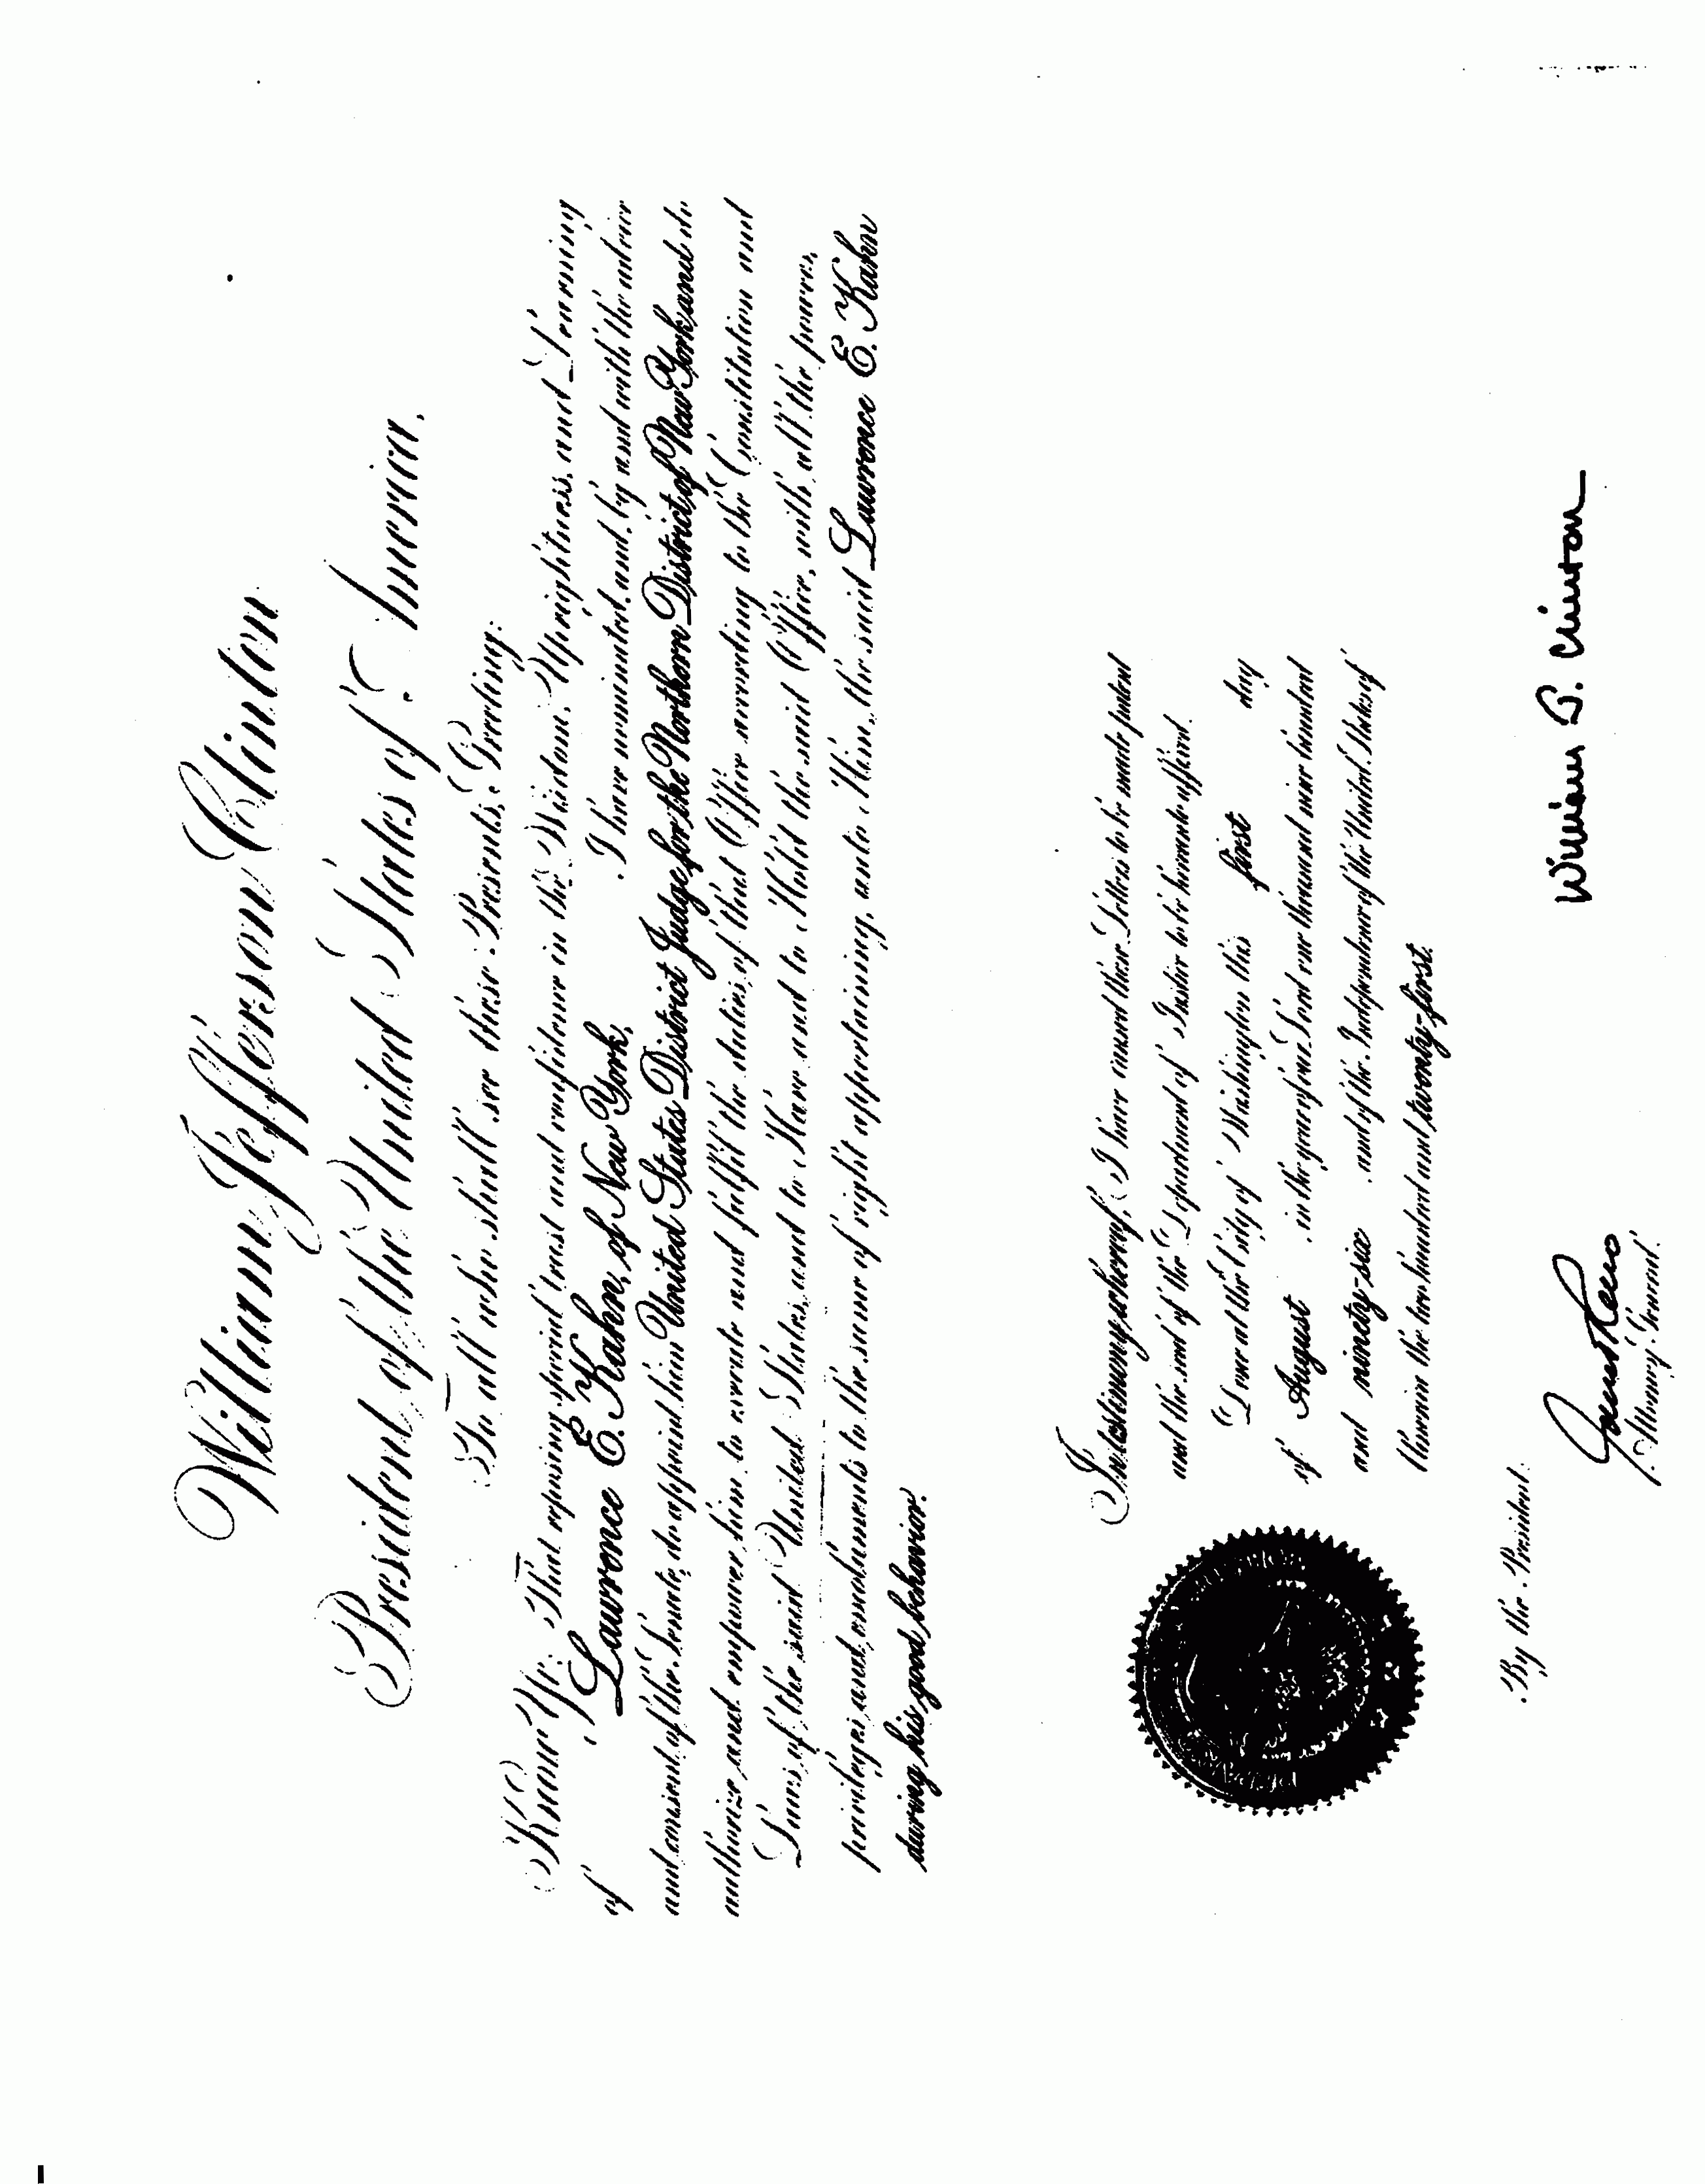 William Jefferson Clinton
President of the United States of America.
To all who shall see these Presents, Greeting:
Know Ye: That reposing special trust and confidence in the Wisdom, Uprightness, and Learning
of Lawrence E. Kahn, of New York, I have nominated, and, by and with the advice
and consent of the Senate, do appoint him United States District Judge for the Northern District of New York and do
authorize and empower him to execute and fulfil the duties of that Office according to the Constitution and
Laws of the said United States, and to Have and to Hold the said Office, with all the powers,
privileges and emoluments to the same of right appertaining, unto Him, the said Lawrence E. Kahn
during his good behavior.
In testimony whereof, I have caused these Letters to be made patent
and the seal of the Department of Justice to be hereunto affixed.
Done at the City of Washington this first day
of August in the year of our Lord one thousand nine hundred
and ninety-six and of the Independence of the United States of
America the two hundred and twenty-first.
William J. Clinton
By the President:
Janet Reno
Attorney General.